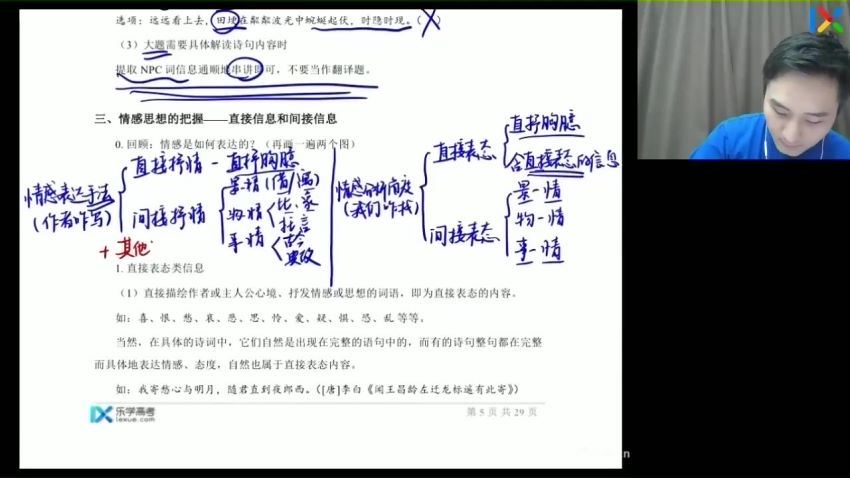 选项：远远看上去，田埂在粼粼波光中蜿蜒起伏，时隐时现。（X）
（3）大题需要具体解读诗句内容时
提取 NPC 词信息通顺地串讲即可，不要当作翻译题。
三、情感思想的把握——直接信息和间接信息
0. 回顾：情感是如何表达的？（再画一遍两个图）
情感表达手法
（作者咋写）
直接抒情 - 直抒胸臆
间接抒情
景-情（借/寓）
物-情
比、象
托言
事-情
古今
典故
+ 其他
情感分析角度
（我们咋找）
直接表态
直抒胸臆
含直接表态的信息
间接表态
景-情
物-情
事-情
1. 直接表态类信息
（1）直接描绘作者或主人公心境、抒发情感或思想的词语，即为直接表态的内容。
如：喜、恨、愁、哀、悲、思、怜、爱、疑、惧、恐、乱 等等。
当然，在具体的诗词中，它们自然是出现在完整的语句中的，而有的诗句整句都在完整
而具体地表达情感、态度，自然也属于直接表态内容。
如：我寄愁心与明月，随君直到夜郎西。（[唐]李白《闻王昌龄左迁龙标遥有此寄》）
乐学高考
lexue.com
第 5 页 共 29 页